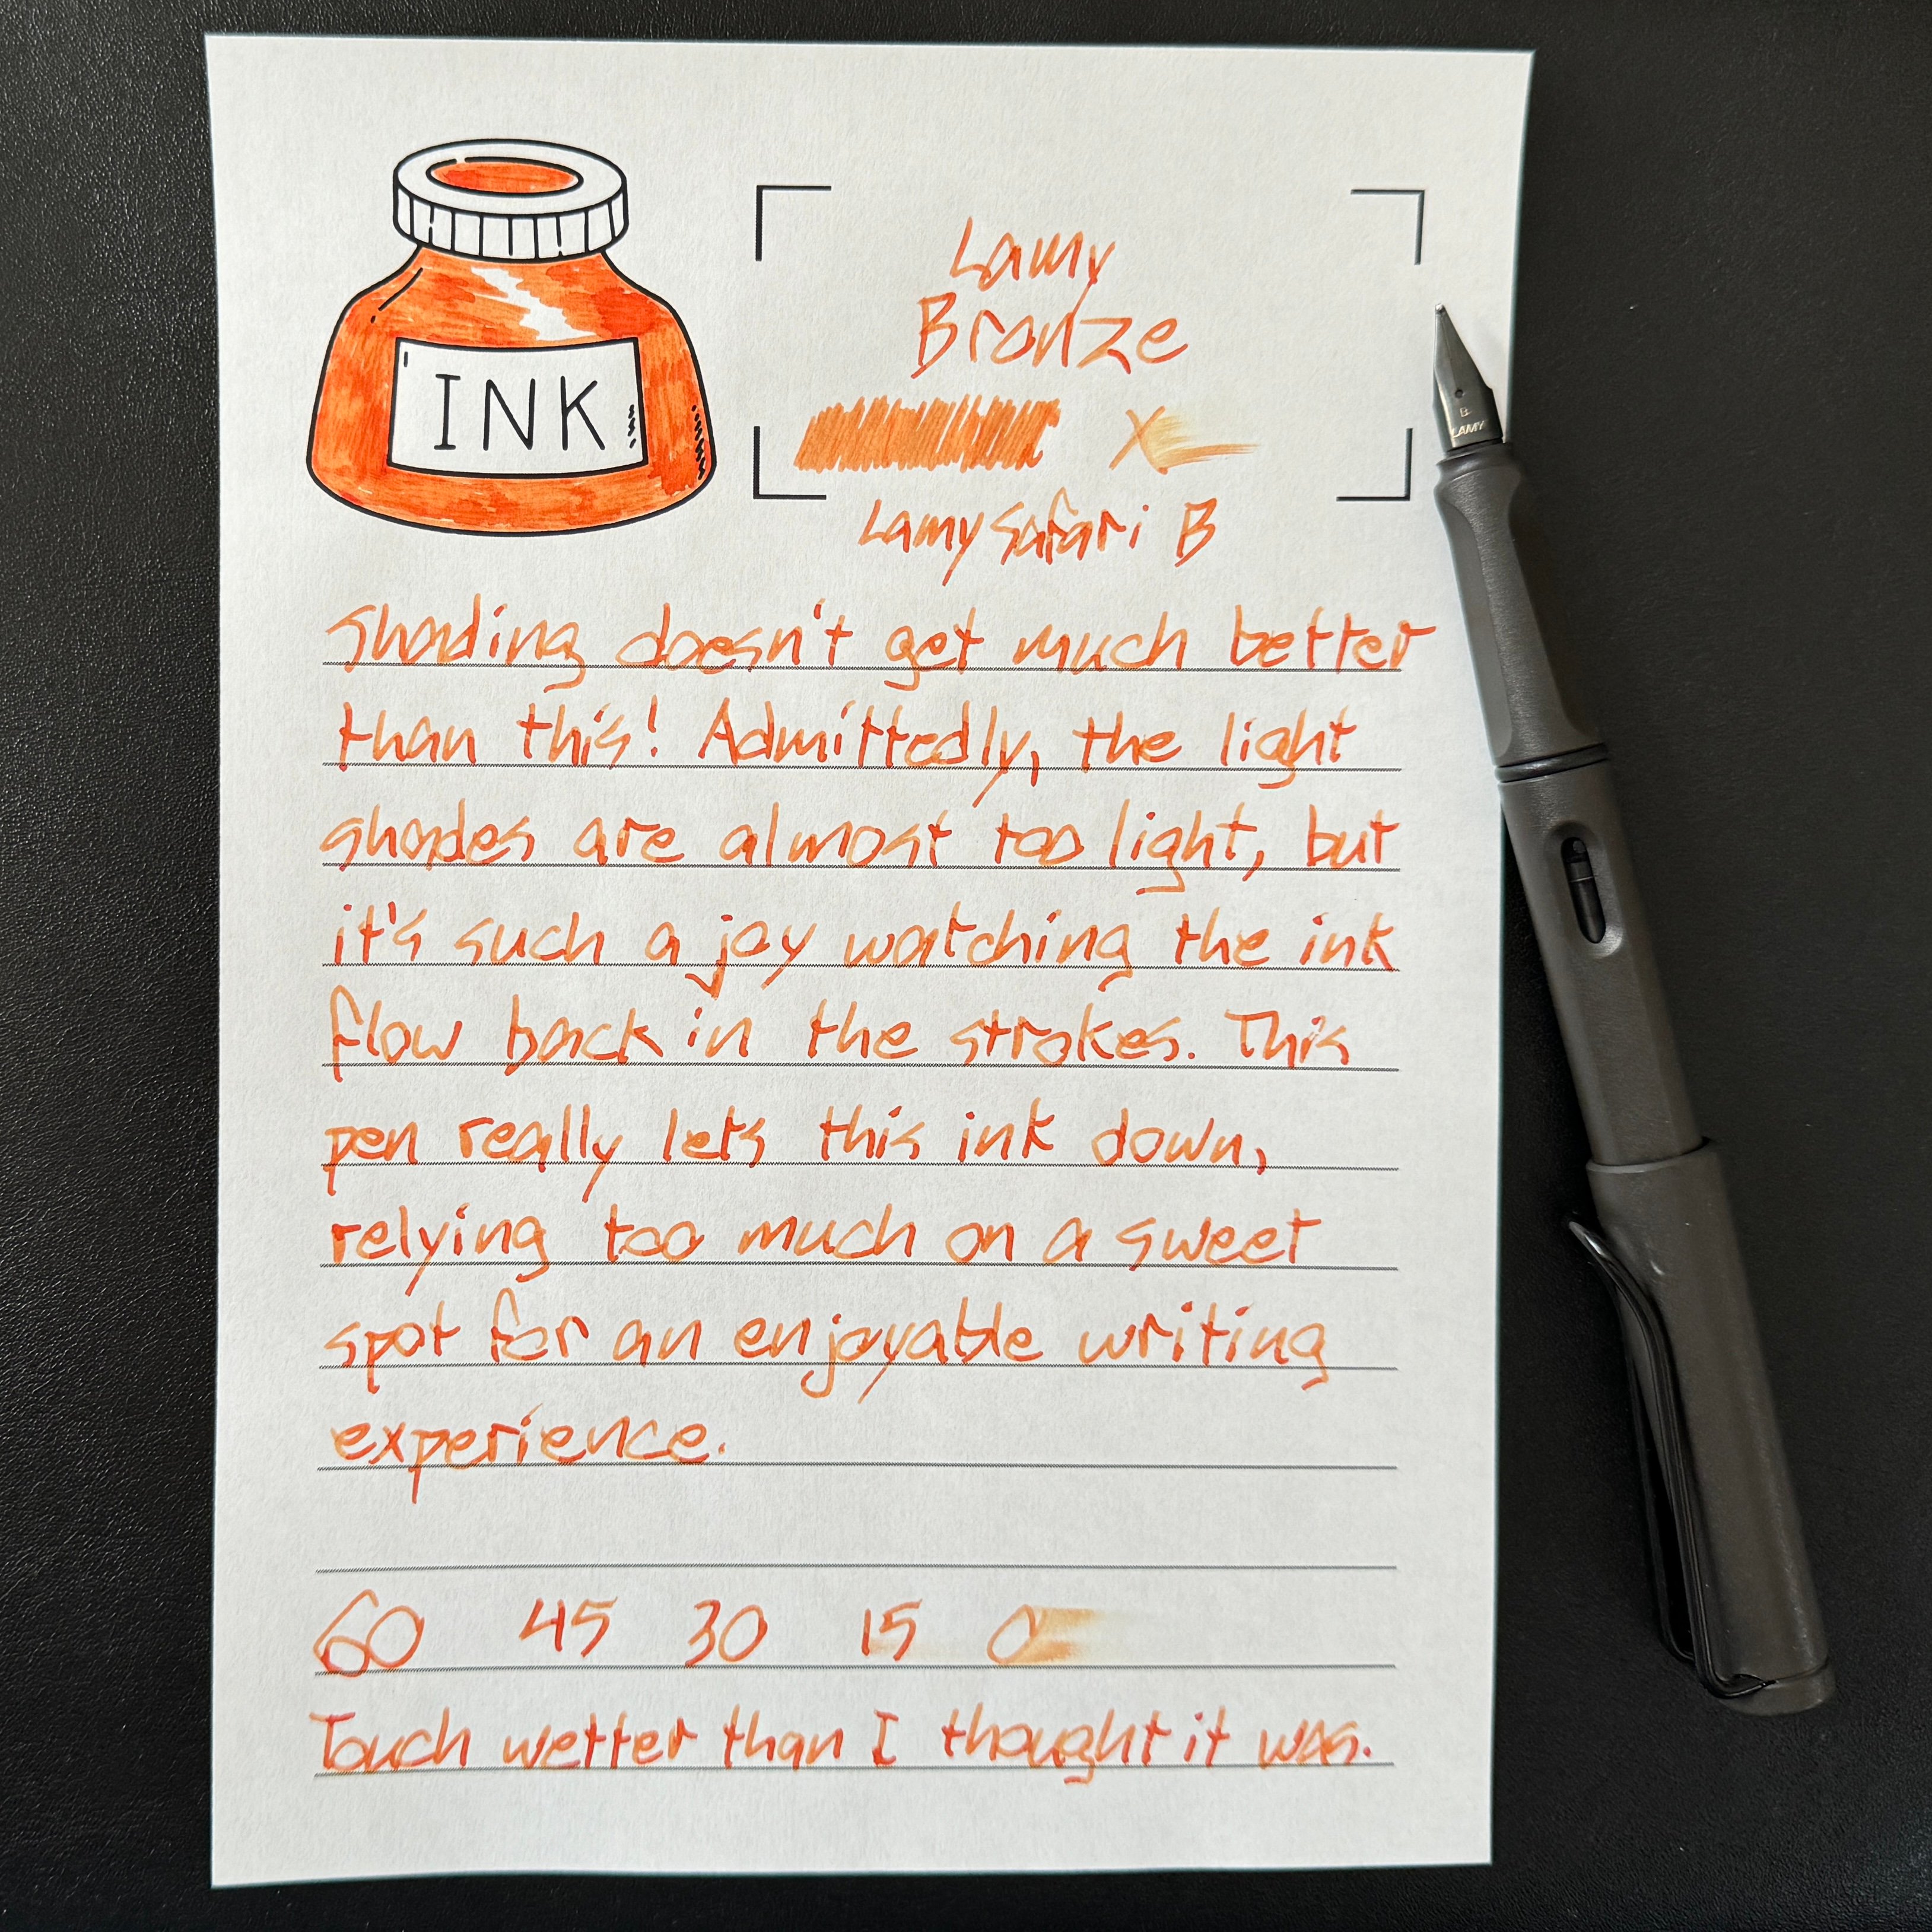 INK
Lamy
Bronze
X
Lamy Safari B
Shading doesn't get much better
than this! Admittedly, the light
shades are almost too light, but
it's such a joy watching the ink
flow back in the strokes. This
pen really lets this ink down,
relying too much on a sweet
spot for an enjoyable writing
experience.
60 45 30 15 0
Touch wetter than I thought it was.
B
LAMY